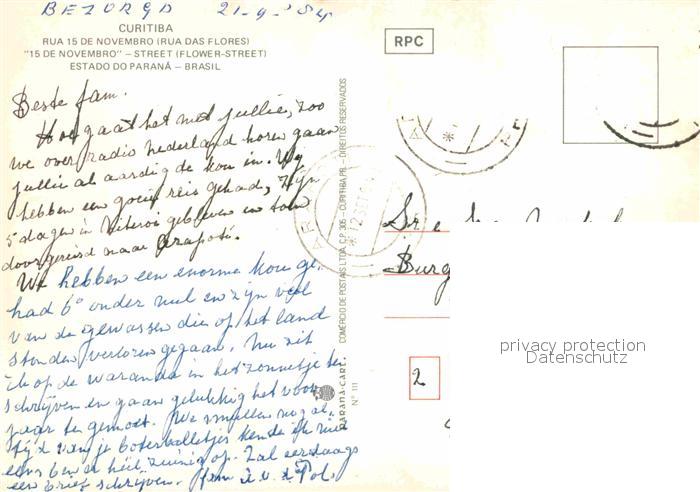 BEZORGD 21-9-'84
CURITIBA
RUA 15 DE NOVEMBRO (RUA DAS FLORES)
"15 DE NOVEMBRO" – STREET (FLOWER-STREET)
ESTADO DO PARANÁ – BRASIL
Beste fam.
Hoe gaat het met jullie, zoo
we over radio nederland horen gaan
jullie al aardig de kou in. Wy
hebben een goeie reis gehad, zijn
5 dagen in Niteroi gebleven en toen
doorgereisd naar Arapoti.
We hebben een enorme kou ge-
had 6° onder nul en zijn veel
van de gewassen die op het land
stonden verloren gegaan. Nu zit
ik op de waranda in het zonnetje te
schrijven en gaan gelukkig het voor
jaar te gemoet. We smullen nog al-
tijd van je boterballetjes
eens ben er heel zuinig op. Zal eerstdaags
een brief schrijven. fam
COMERCIO DE POSTAIS LTDA. C.P. 305 – CURITIBA, PR. – DIREITOS RESERVADOS
PARANÁ-CART
Nº 111
RPC
Sr e
Burg
2
privacy protection
Datenschutz